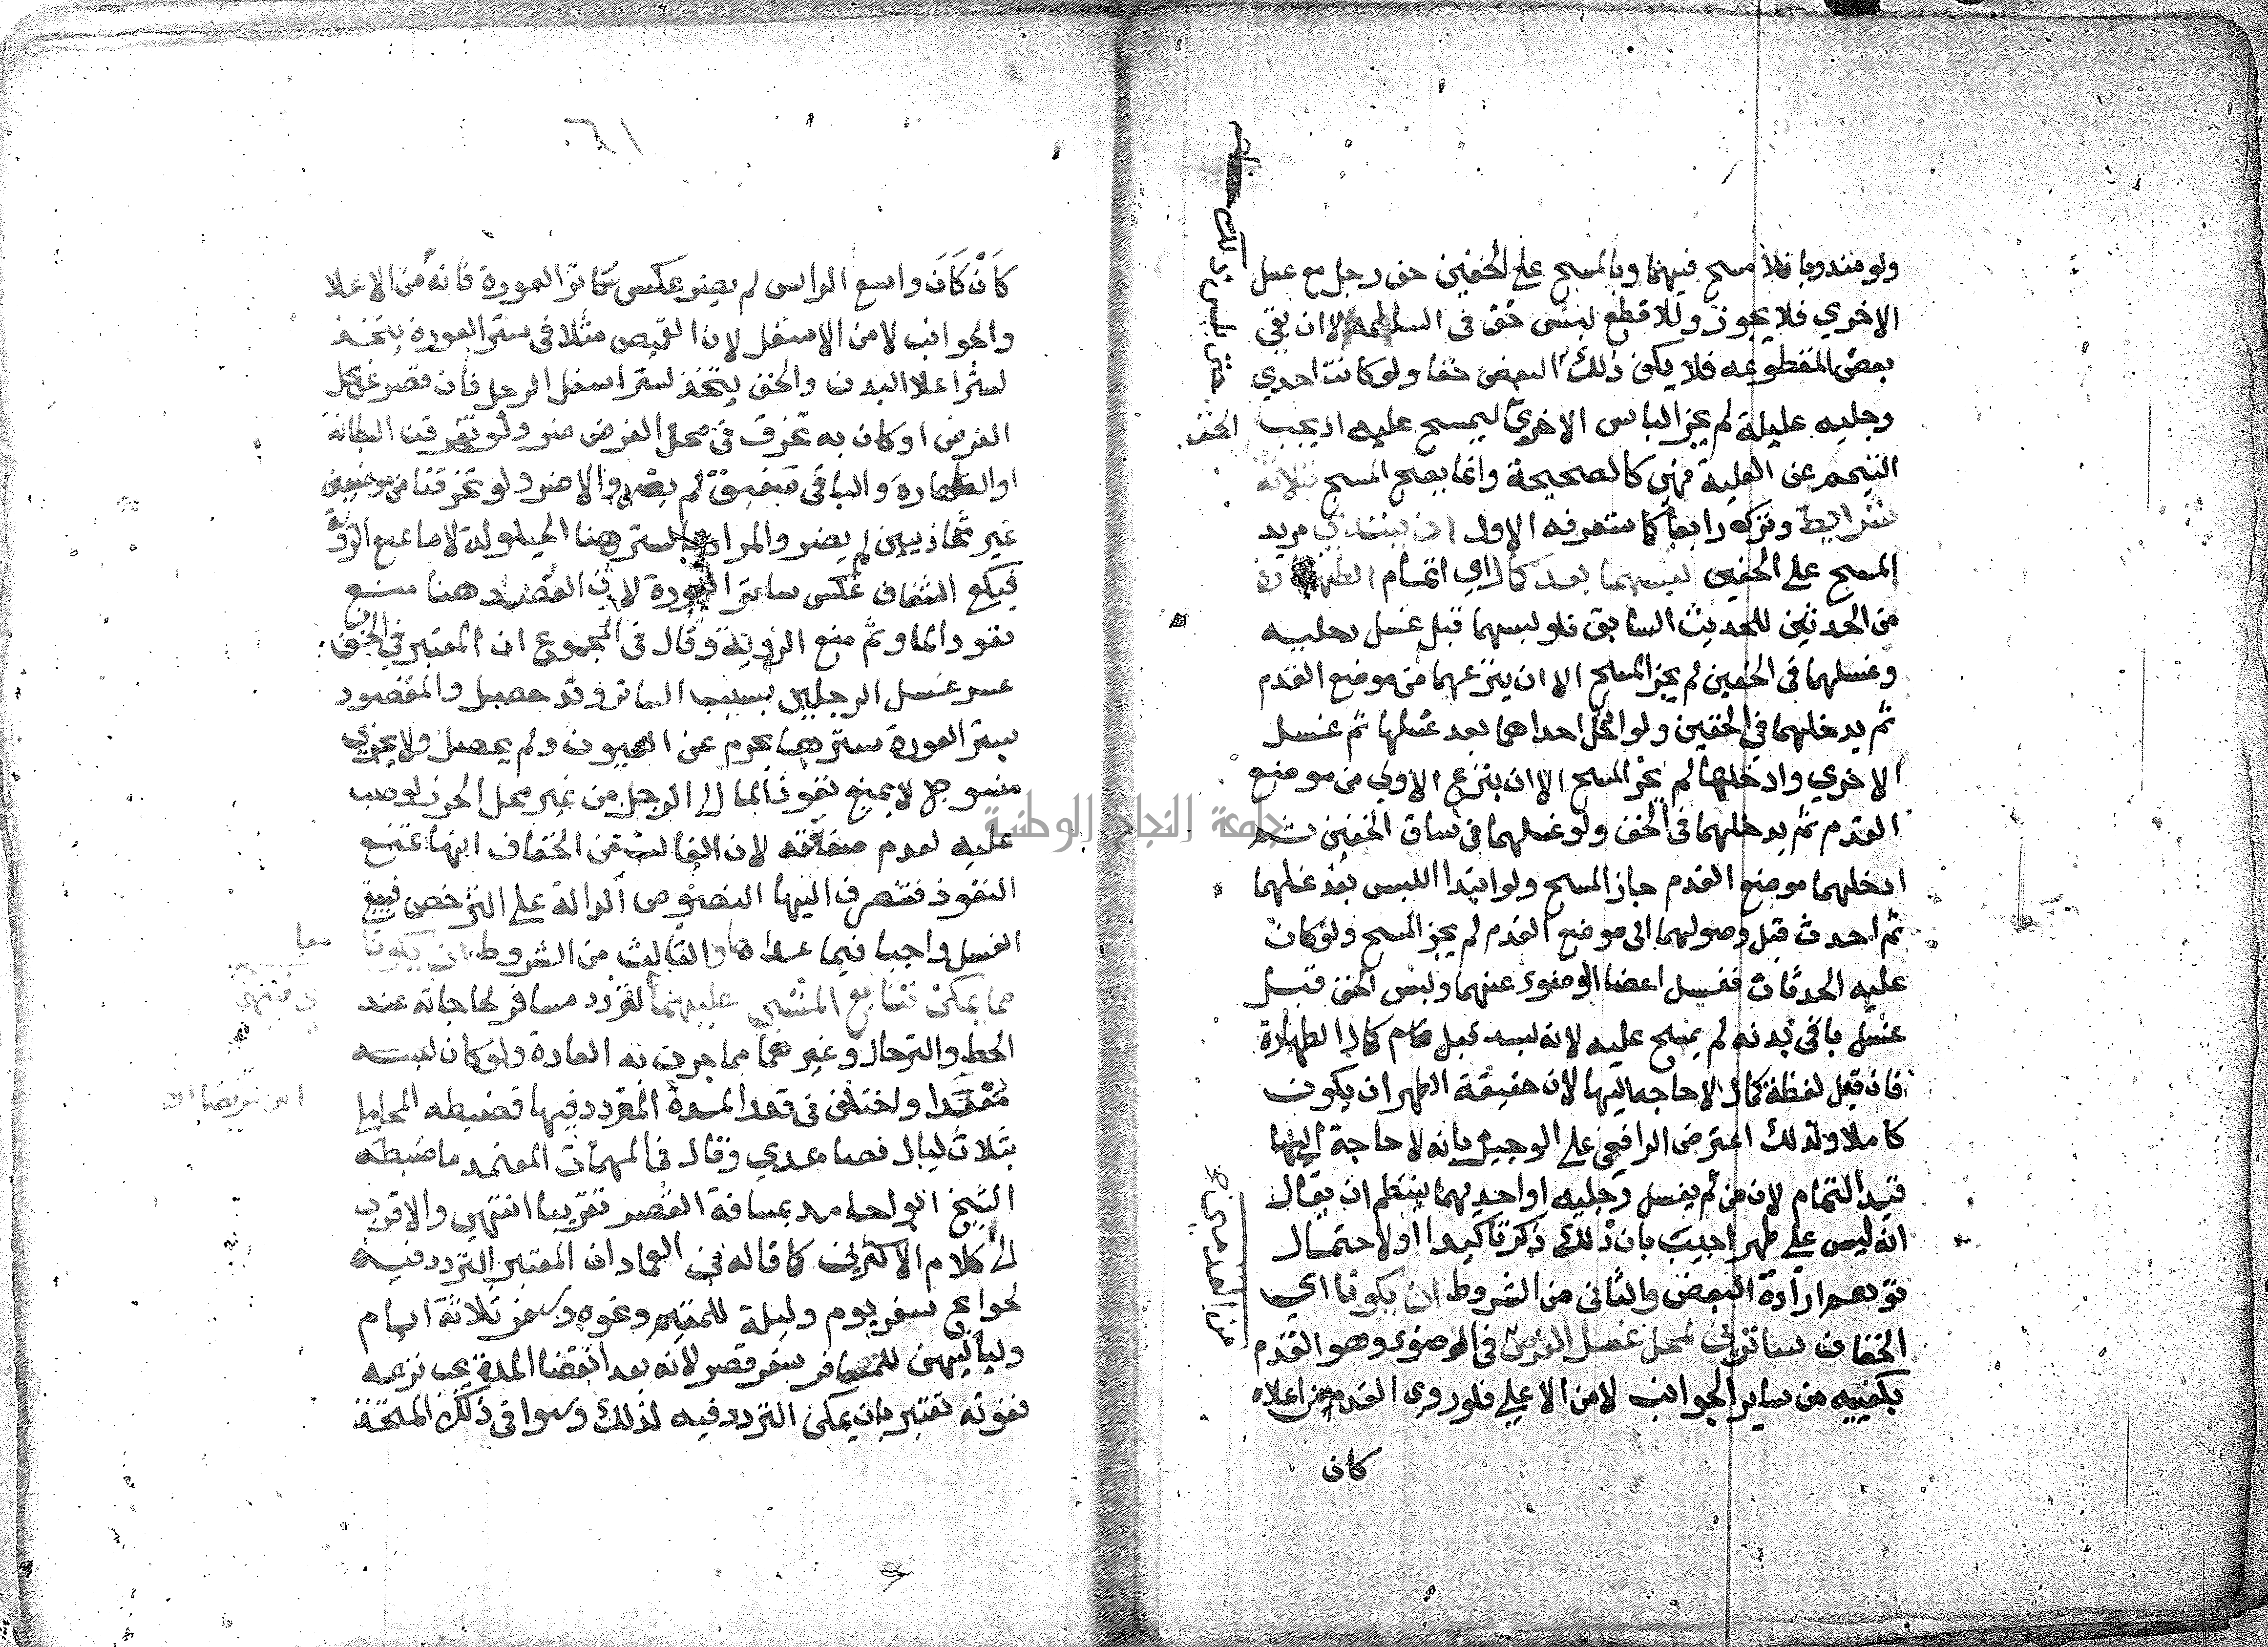 ولو مندوبا فلا مسح فيهما وبالمسح على الخفين خف رجل مع غسل
الاخري فلا يجوز وللاقطع لبس خف في السالمة الا ان بقي
بعض المقطوعه فلا يكفي ذلك البعض خفا ولو كانت احدي
رجليه عليلة لم يجز الباس الاخري ليمسح عليه اذ يجب
التيمم عن العليلة فهي كالصحيحة وانما يصح المسح بثلاثة
شرايط وترك رابعا كما ستعرفه الاول ان يبتدي مريد
المسح على الخفين لبسهما بعد كمال اي اتمام الطهارة
من الحدثين للحديث السابق فلو لبسهما قبل غسل رجليه
وغسلهما في الخفين لم يجز المسح الا ان ينزعهما من موضع القدم
ثم يدخلهما في الخفين ولو ادخل احداهما بعد غسلها ثم غسل
الاخري وادخلها لم يجز المسح الا ان ينزع الاولي من موضع
القدم ثم يدخلهما في الخف ولو غسلهما في ساق الخفين ثم
ادخلهما موضع القدم جاز المسح ولو ابتدا اللبس بعد غسلهما
ثم احدث قبل وصولهما الى موضع القدم لم يجز المسح ولو كان
عليه الحدثان فغسل اعضا الوضوء عنهما ولبس الخف قبل
غسل باقي بدنه لم يمسح عليه لانه لبسه قبل تمام كمال الطهارة
فان قيل لفظة كمال لا حاجه اليها لان حقيقة الطهر ان يكون
كاملا ولذلك اعترض الرافعي على الوجيز بانه لا حاجة اليها
قيد التمام لان من لم يغسل رجليه او احديهما ينتظم ان يقال
انه ليس على طهر اجيب بان ذلك ذكر تاكيدا او لاحتمال
توهم ارادة البعض والثاني من الشروط ان يكونا اي
الخفان ساترين لمحل غسل الفرض في الوضوء وهو القدم
بكعبيه من ساير الجوانب لا من الاعلي فلو روي القدم من اعلاه
كان
الخف
٦١
كَاَنْ كَانَ واسع الراس لم يضر عكس ساتر العورة فانه من الاعلا
والجوانب لا من الاسفل لان القميص مثلا في ستر العورة يتخذ
لستر اعلا البدن والخف يتخذ لستر اسفل الرجل فان قصر عن محل
الفرض او كان به تخرق في محل الفرض ضر ولو تخرقت البطانة
او الظهارة والباقي صفيق لم يضر والا ضر ولو تخرقتا من موضعين
غير متحاذيين لم يضر والمراد بالستر هنا الحيلولة لا ما يمنع الروية
فيكفي الشفاف عكس ساتر العورة لان القصد هنا منع
نفوذ الما وثم منع الروية وقال في المجموع ان المعتبر في الخف
عسر غسل الرجلين بسبب الساتر وقد حصل والمقصود
بستر العورة سترها بجرم عن العيون ولم يحصل ولا يجزي
منسوج لا يمنع نفوذ الما الى الرجل من غير محل الخرز لو صب
عليه لعدم صفاقته لان الغالب من الخفاف انها تمنع
النفوذ فتنصرف اليها النصوص الدالة على الترخص فيبقي
الغسل واجبا فيما عداها والثالث من الشروط ان يكونا
معا
مما يمكن تتابع المشي عليهما لتردد مسافر لحاجاته عند
الحط والترحال وغيرهما مما جرت به العادة ولو كان لابسه
مُقْعَدا واختلف في قدر المدة المتردد فيها فضبطه المحاملي
بثلاث ليال فصاعدي وقال في المهمات المعتمد ما ضبطه
الشيخ ابو حامد بمسافة القصر تقريبا انتهي والاقرب
الى كلام الاكثرين كما قاله في العماد ان المعتبر التردد فيه
لحوايج سفر يوم وليلة للمقيم ونحوه وسفر ثلاثة ايام
ولياليهن للمسافر سفر قصر لانه بعد انقضا المدة يجب نزعه
فقوته تعتبر بان يمكن التردد فيه لذلك وسوا في ذلك المتخذ
جامعة النجاح الوطنية